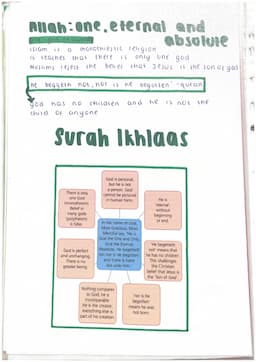 Allah: one, eternal and
absolute
Islam is a monotheistic religion
is teaches that there is only one god
Muslims reject the belief that Jesus is the son of god
"he begetteh not, nor is he begotten" - quran
god has no children and he is not the
child of anyone
Surah Ikhlaas
There is only
one God
(monotheism).
Belief in
many gods
(polytheism)
is false.
God is personal,
but he is not
a person. God
cannot be pictured
in human form.
He is
'eternal':
without
beginning
or end.
In the name of God,
Most Gracious, Most
Merciful say, 'He is
God the One and Only;
God the Eternal,
Absolute. He begetteth
not nor is He begotten
and there is none
like unto Him.'
God is perfect
and unchanging.
There is no
greater being.
'He begetteth
not' means that
he has no children.
This challenges
the Christian
belief that Jesus is
the 'Son of God'.
Nothing compares
to God; he is
incomparable.
He is the creator;
everything else is
part of his creation.
'Nor is He
begotten'
means he was
not born.